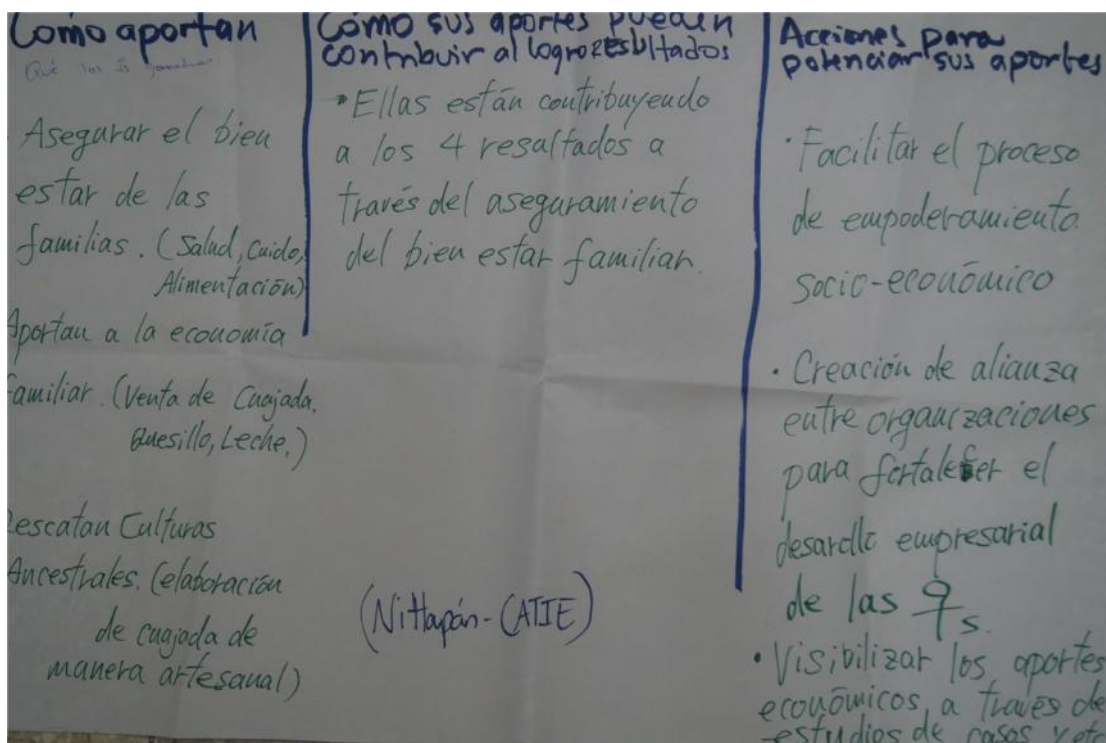 Como aportan
Asegurar el bien
estar de las
familias. (Salud, Cuido,
Alimentación)
Aportan a la economía
familiar. (Venta de Cuajada,
Quesillo, Leche,)
Rescatan Culturas
Ancestrales. (elaboración
de cuajada de
manera artesanal)
Cómo sus aportes pueden
contribuir al logro resultados
• Ellas están contribuyendo
a los 4 resaltados a
través del aseguramiento
del bien estar familiar.
(Nitlapán-CATIE)
Acciones para
potenciar sus aportes
• Facilitar el proceso
de empoderamiento
socio-económico
• Creación de alianza
entre organizaciones
para fortaleser el
desarollo empresarial
de las ♀s.
• Visibilizar los aportes
económicos a través de
estudios de casos y etc